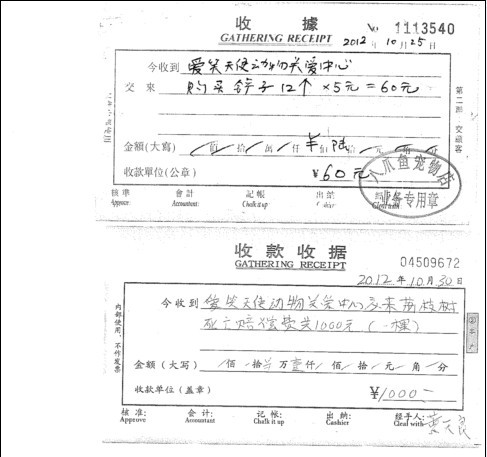 收據
№ 1113540
GATHERING RECEIPT 2012年10月25日
今收到 爱笑天使动物关爱中心
交來 购买铲子12个×5元=60元
第二联 交顧客
金額(大寫) 佰 拾 萬 仟 佰 陆拾 元 角 分
收款單位(公章) ¥60元
八爪鱼宠物店
业务专用章
核準 會計 記帳 出納
Approve Accountant Chalk it up Cashier
收款收据 04509672
GATHERING RECEIPT
2012年10月30日
内部使用,不作发票
今收到 爱笑天使动物关爱中心交来荔枝树
死亡赔偿费共1000元(一棵)
金额(大写) 佰 拾 万 壹仟 佰 拾 元 角 分
收款单位(盖章) ¥1000
核准: 会计: 记帐: 出纳: 经手人:
Approve Accountant Chalk it up Cashier Cleal with